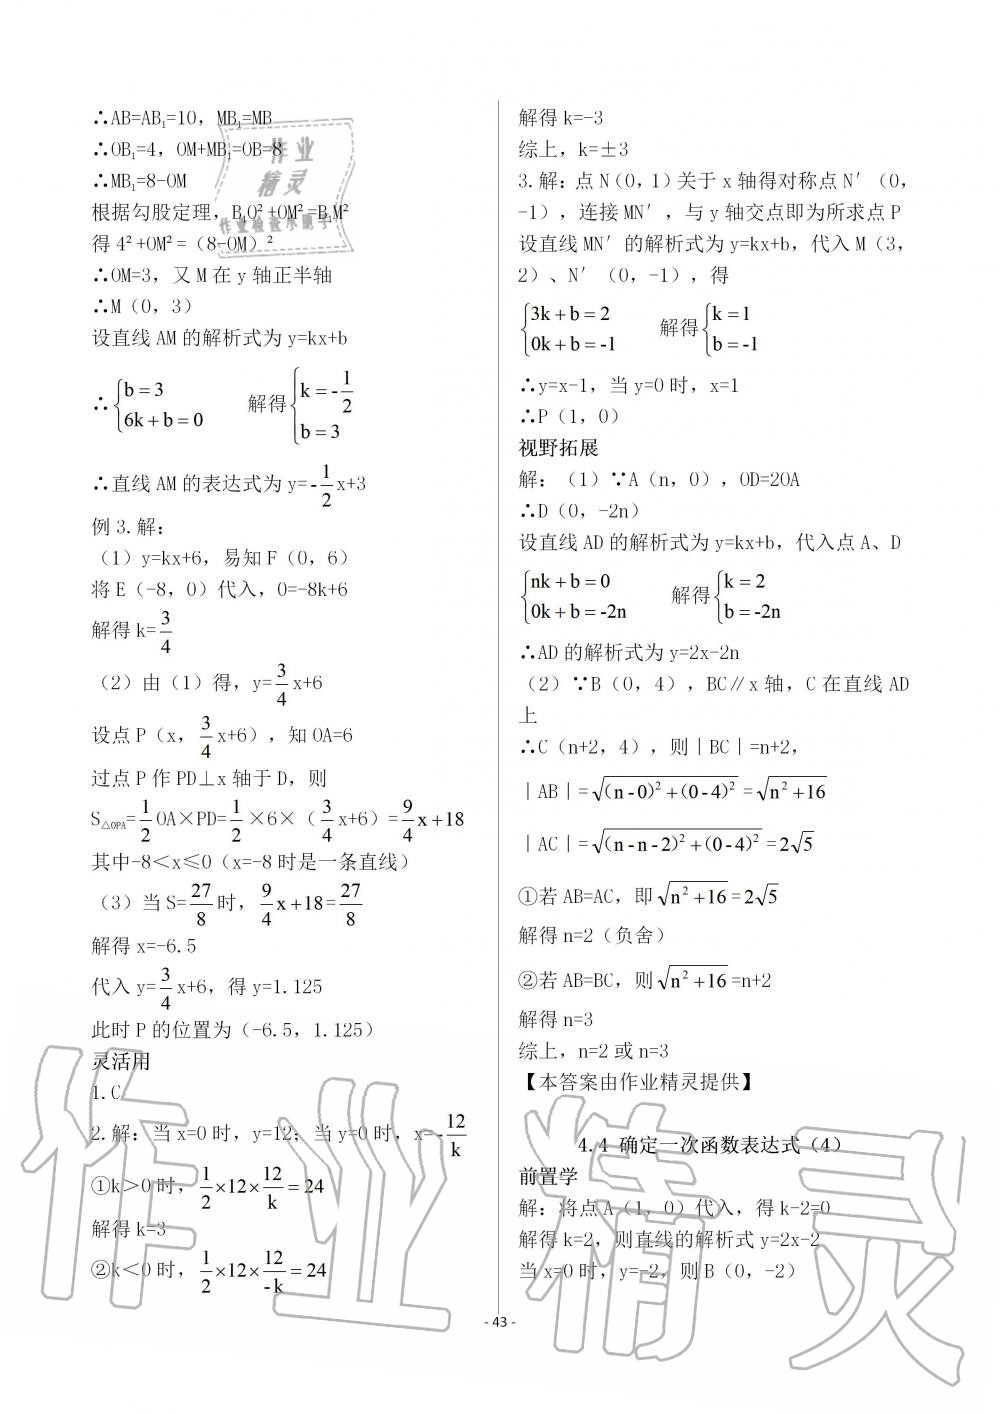 ∴AB=AB₁=10，MB₁=MB
∴OB₁=4，OM+MB₁=OB=8
∴MB₁=8-OM
根据勾股定理，B₁O²+OM²=B₁M²
得 4²+OM²=（8-OM）²
∴OM=3，又 M 在 y 轴正半轴
∴M（0，3）
设直线 AM 的解析式为 y=kx+b
∴{b=3 6k+b=0 解得{k=-1/2 b=3
∴直线 AM 的表达式为 y=-1/2x+3
例 3.解：
（1）y=kx+6，易知 F（0，6）
将 E（-8，0）代入，0=-8k+6
解得 k=3/4
（2）由（1）得，y=3/4x+6
设点 P（x，3/4x+6），知 OA=6
过点 P 作 PD⊥x 轴于 D，则
S△OPA=1/2OA×PD=1/2×6×（3/4x+6）=9/4x+18
其中-8＜x≤0（x=-8 时是一条直线）
（3）当 S=27/8时，9/4x+18=27/8
解得 x=-6.5
代入 y=3/4x+6，得 y=1.125
此时 P 的位置为（-6.5，1.125）
灵活用
1.C
2.解：当 x=0 时，y=12；当 y=0 时，x=-12/k
①k＞0 时，1/2×12×12/k=24
解得 k=3
②k＜0 时，1/2×12×12/-k=24
解得 k=-3
综上，k=±3
3.解：点 N（0，1）关于 x 轴得对称点 N′（0，
-1），连接 MN′，与 y 轴交点即为所求点 P
设直线 MN′的解析式为 y=kx+b，代入 M（3，
2）、N′（0，-1），得
{3k+b=2 0k+b=-1 解得{k=1 b=-1
∴y=x-1，当 y=0 时，x=1
∴P（1，0）
视野拓展
解：（1）∵A（n，0），OD=2OA
∴D（0，-2n）
设直线 AD 的解析式为 y=kx+b，代入点 A、D
{nk+b=0 0k+b=-2n 解得{k=2 b=-2n
∴AD 的解析式为 y=2x-2n
（2）∵B（0，4），BC∥x 轴，C 在直线 AD
上
∴C（n+2，4），则｜BC｜=n+2，
｜AB｜=√((n-0)²+(0-4)²)=√(n²+16)
｜AC｜=√((n-n-2)²+(0-4)²)=2√5
①若 AB=AC，即√(n²+16)=2√5
解得 n=2（负舍）
②若 AB=BC，则√(n²+16)=n+2
解得 n=3
综上，n=2 或 n=3
【本答案由作业精灵提供】
4.4 确定一次函数表达式（4）
前置学
解：将点 A（1，0）代入，得 k-2=0
解得 k=2，则直线的解析式 y=2x-2
当 x=0 时，y=-2，则 B（0，-2）
- 43 -
作业
精灵
作业检查小助手
作业精灵